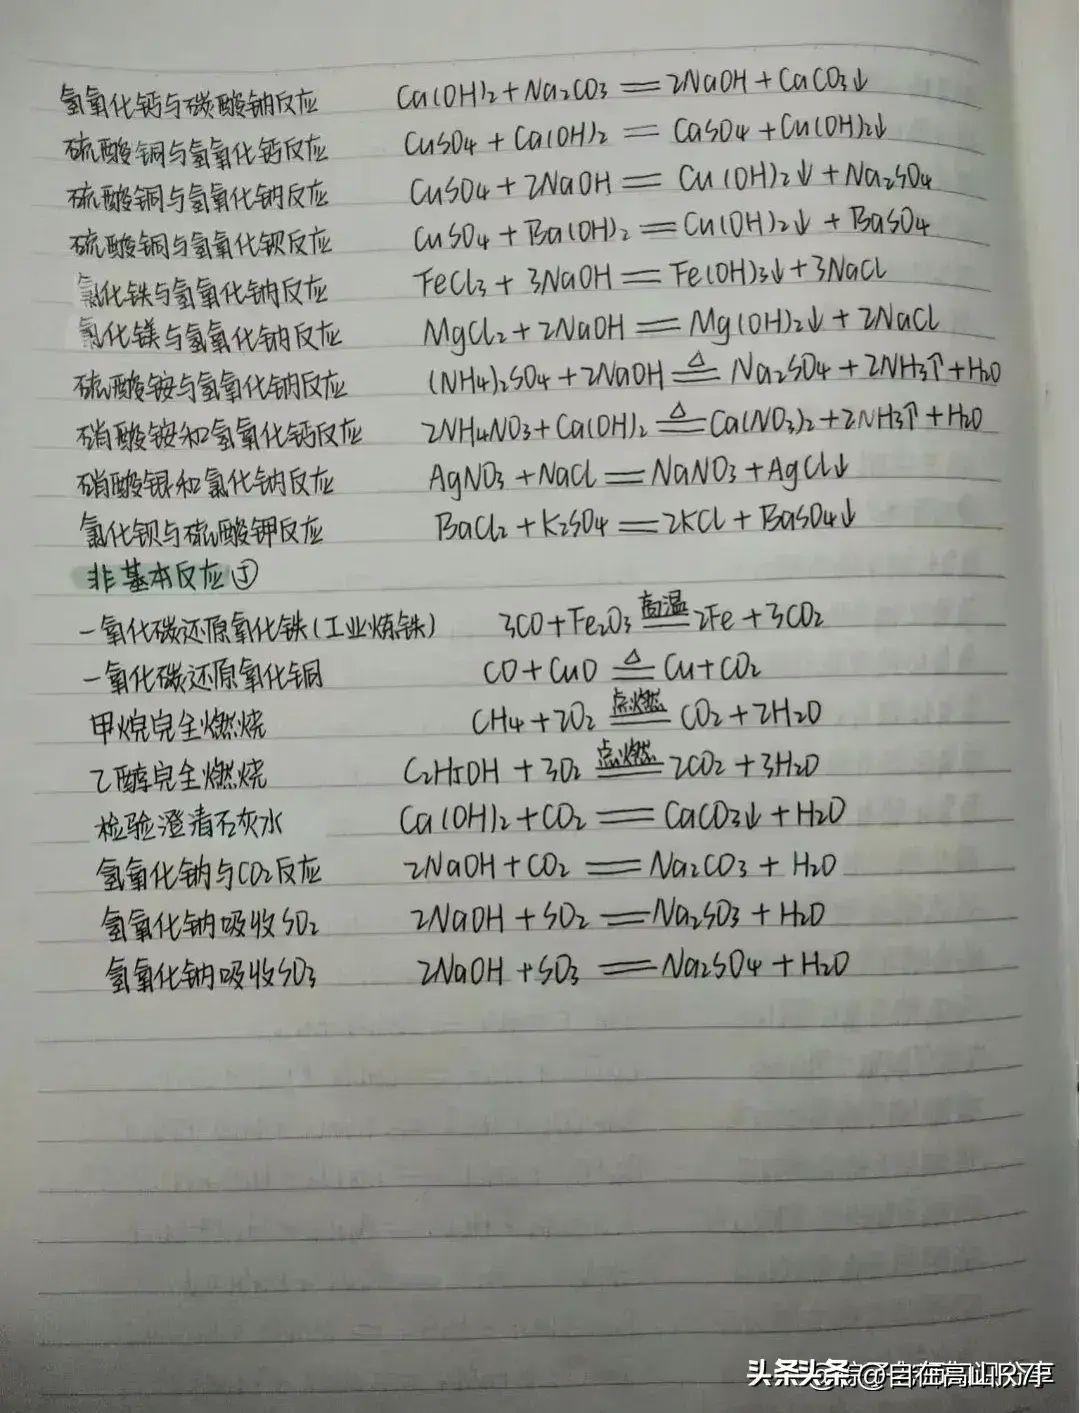 氢氧化钙与碳酸钠反应 Ca(OH)₂+Na₂CO₃══2NaOH+CaCO₃↓
硫酸铜与氢氧化钙反应 CuSO₄+Ca(OH)₂══CaSO₄+Cu(OH)₂↓
硫酸铜与氢氧化钠反应 CuSO₄+2NaOH══Cu(OH)₂↓+Na₂SO₄
硫酸铜与氢氧化钡反应 CuSO₄+Ba(OH)₂══Cu(OH)₂↓+BaSO₄
氯化铁与氢氧化钠反应 FeCl₃+3NaOH══Fe(OH)₃↓+3NaCl
氯化镁与氢氧化钠反应 MgCl₂+2NaOH══Mg(OH)₂↓+2NaCl
硫酸铵与氢氧化钠反应 (NH₄)₂SO₄+2NaOH═△═Na₂SO₄+2NH₃↑+H₂O
硝酸铵和氢氧化钙反应 2NH₄NO₃+Ca(OH)₂═△═Ca(NO₃)₂+2NH₃↑+H₂O
硝酸银和氯化钠反应 AgNO₃+NaCl══NaNO₃+AgCl↓
氯化钡与硫酸钾反应 BaCl₂+K₂SO₄══2KCl+BaSO₄↓
非基本反应
一氧化碳还原氧化铁(工业炼铁) 3CO+Fe₂O₃═高温═2Fe+3CO₂
一氧化碳还原氧化铜 CO+CuO═△═Cu+CO₂
甲烷完全燃烧 CH₄+2O₂═点燃═CO₂+2H₂O
乙醇完全燃烧 C₂H₅OH+3O₂═点燃═2CO₂+3H₂O
检验澄清石灰水 Ca(OH)₂+CO₂══CaCO₃↓+H₂O
氢氧化钠与CO₂反应 2NaOH+CO₂══Na₂CO₃+H₂O
氢氧化钠吸收SO₂ 2NaOH+SO₂══Na₂SO₃+H₂O
氢氧化钠吸收SO₃ 2NaOH+SO₃══Na₂SO₄+H₂O
头条